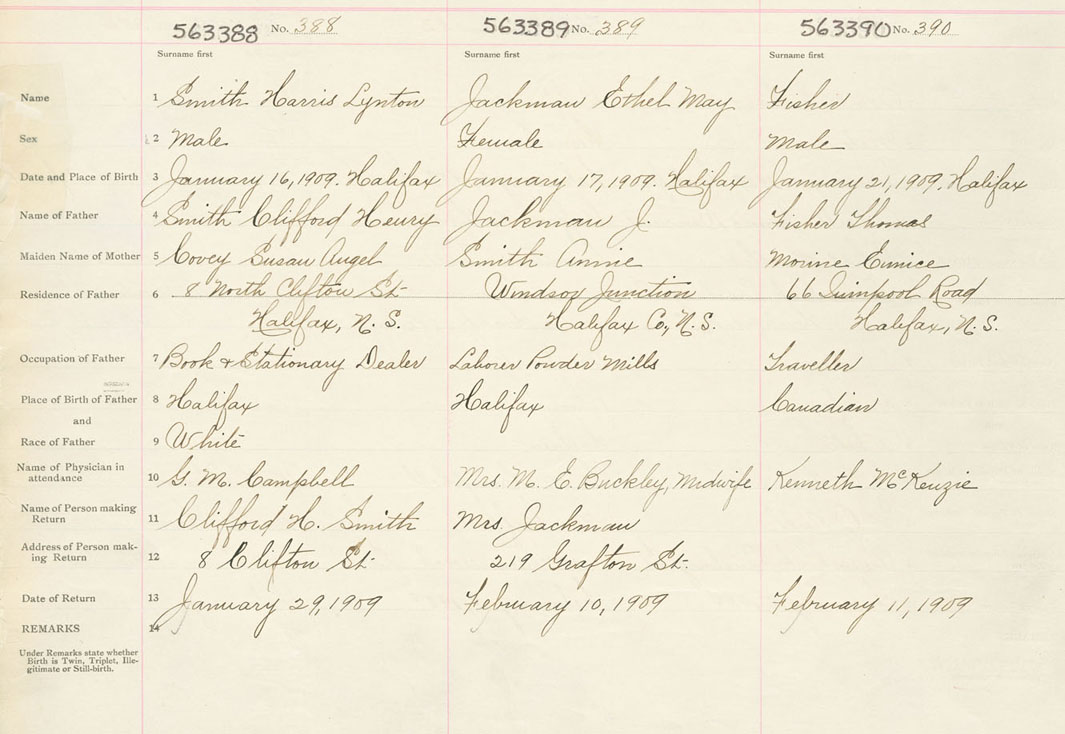 563388 No. 388 563389 No. 389 563390 No. 390
Surname first Surname first Surname first
Name 1 Smith Harris Lynton Jackman Ethel May Fisher
Sex 2 Male Female Male
Date and Place of Birth 3 January 16, 1909. Halifax January 17, 1909. Halifax January 21, 1909. Halifax
Name of Father 4 Smith Clifford Henry Jackman J. Fisher Thomas
Maiden Name of Mother 5 Covey Susan Angel Smith Annie Morine Eunice
Residence of Father 6 8 North Clifton St Windsor Junction 66 Quinpool Road
Halifax, N. S. Halifax Co, N. S. Halifax, N. S.
Occupation of Father 7 Book & Stationary Dealer Laborer Powder Mills Traveller
Place of Birth of Father 8 Halifax Halifax Canadian
and
Race of Father 9 White
Name of Physician in
attendance 10 G. M. Campbell Mrs. M. E. Buckley, Midwife Kenneth McKenzie
Name of Person making
Return 11 Clifford H. Smith Mrs. Jackman
Address of Person mak-
ing Return 12 8 Clifton St 219 Grafton St.
Date of Return 13 January 29, 1909 February 10, 1909 February 11, 1909
REMARKS 14
Under Remarks state whether
Birth is Twin, Triplet, Ille-
gitimate or Still-birth.